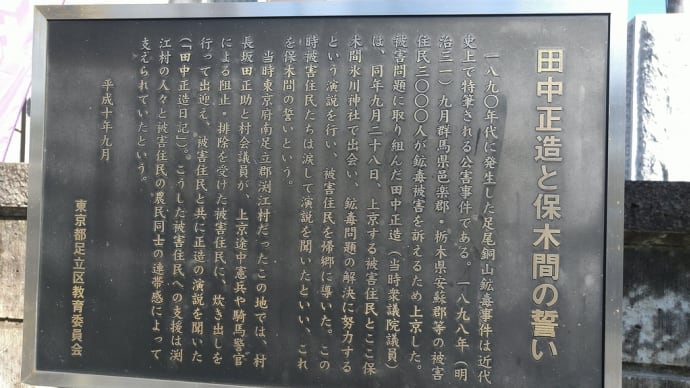 田中正造と保木間の誓い
一八九〇年代に発生した足尾銅山鉱毒事件は近代
史上で特筆される公害事件である。一八九八年（明
治三一）九月群馬県邑楽郡・栃木県安蘇郡等の被害
住民三〇〇〇人が鉱毒被害を訴えるため上京した。
被害問題に取り組んだ田中正造（当時衆議院議員）
は、同年九月二十八日、上京する被害住民とここ保
木間氷川神社で出会い、鉱毒問題の解決に努力する
という演説を行い、被害住民を帰郷に導いた。この
時被害住民たちは涙して演説を聞いたといい、これ
を保木間の誓いという。
当時東京府南足立郡渕江村だったこの地では、村
長坂田正助と村会議員が、上京途中憲兵や騎馬警官
による阻止・排除を受けた被害住民に、炊き出しを
行って出迎え、被害住民と共に正造の演説を聞いた
（「田中正造日記」）。こうした被害住民への支援は渕
江村の人々と被害住民の農民同士の連帯感によって
支えられていたという。
平成十年九月
東京都足立区教育委員会